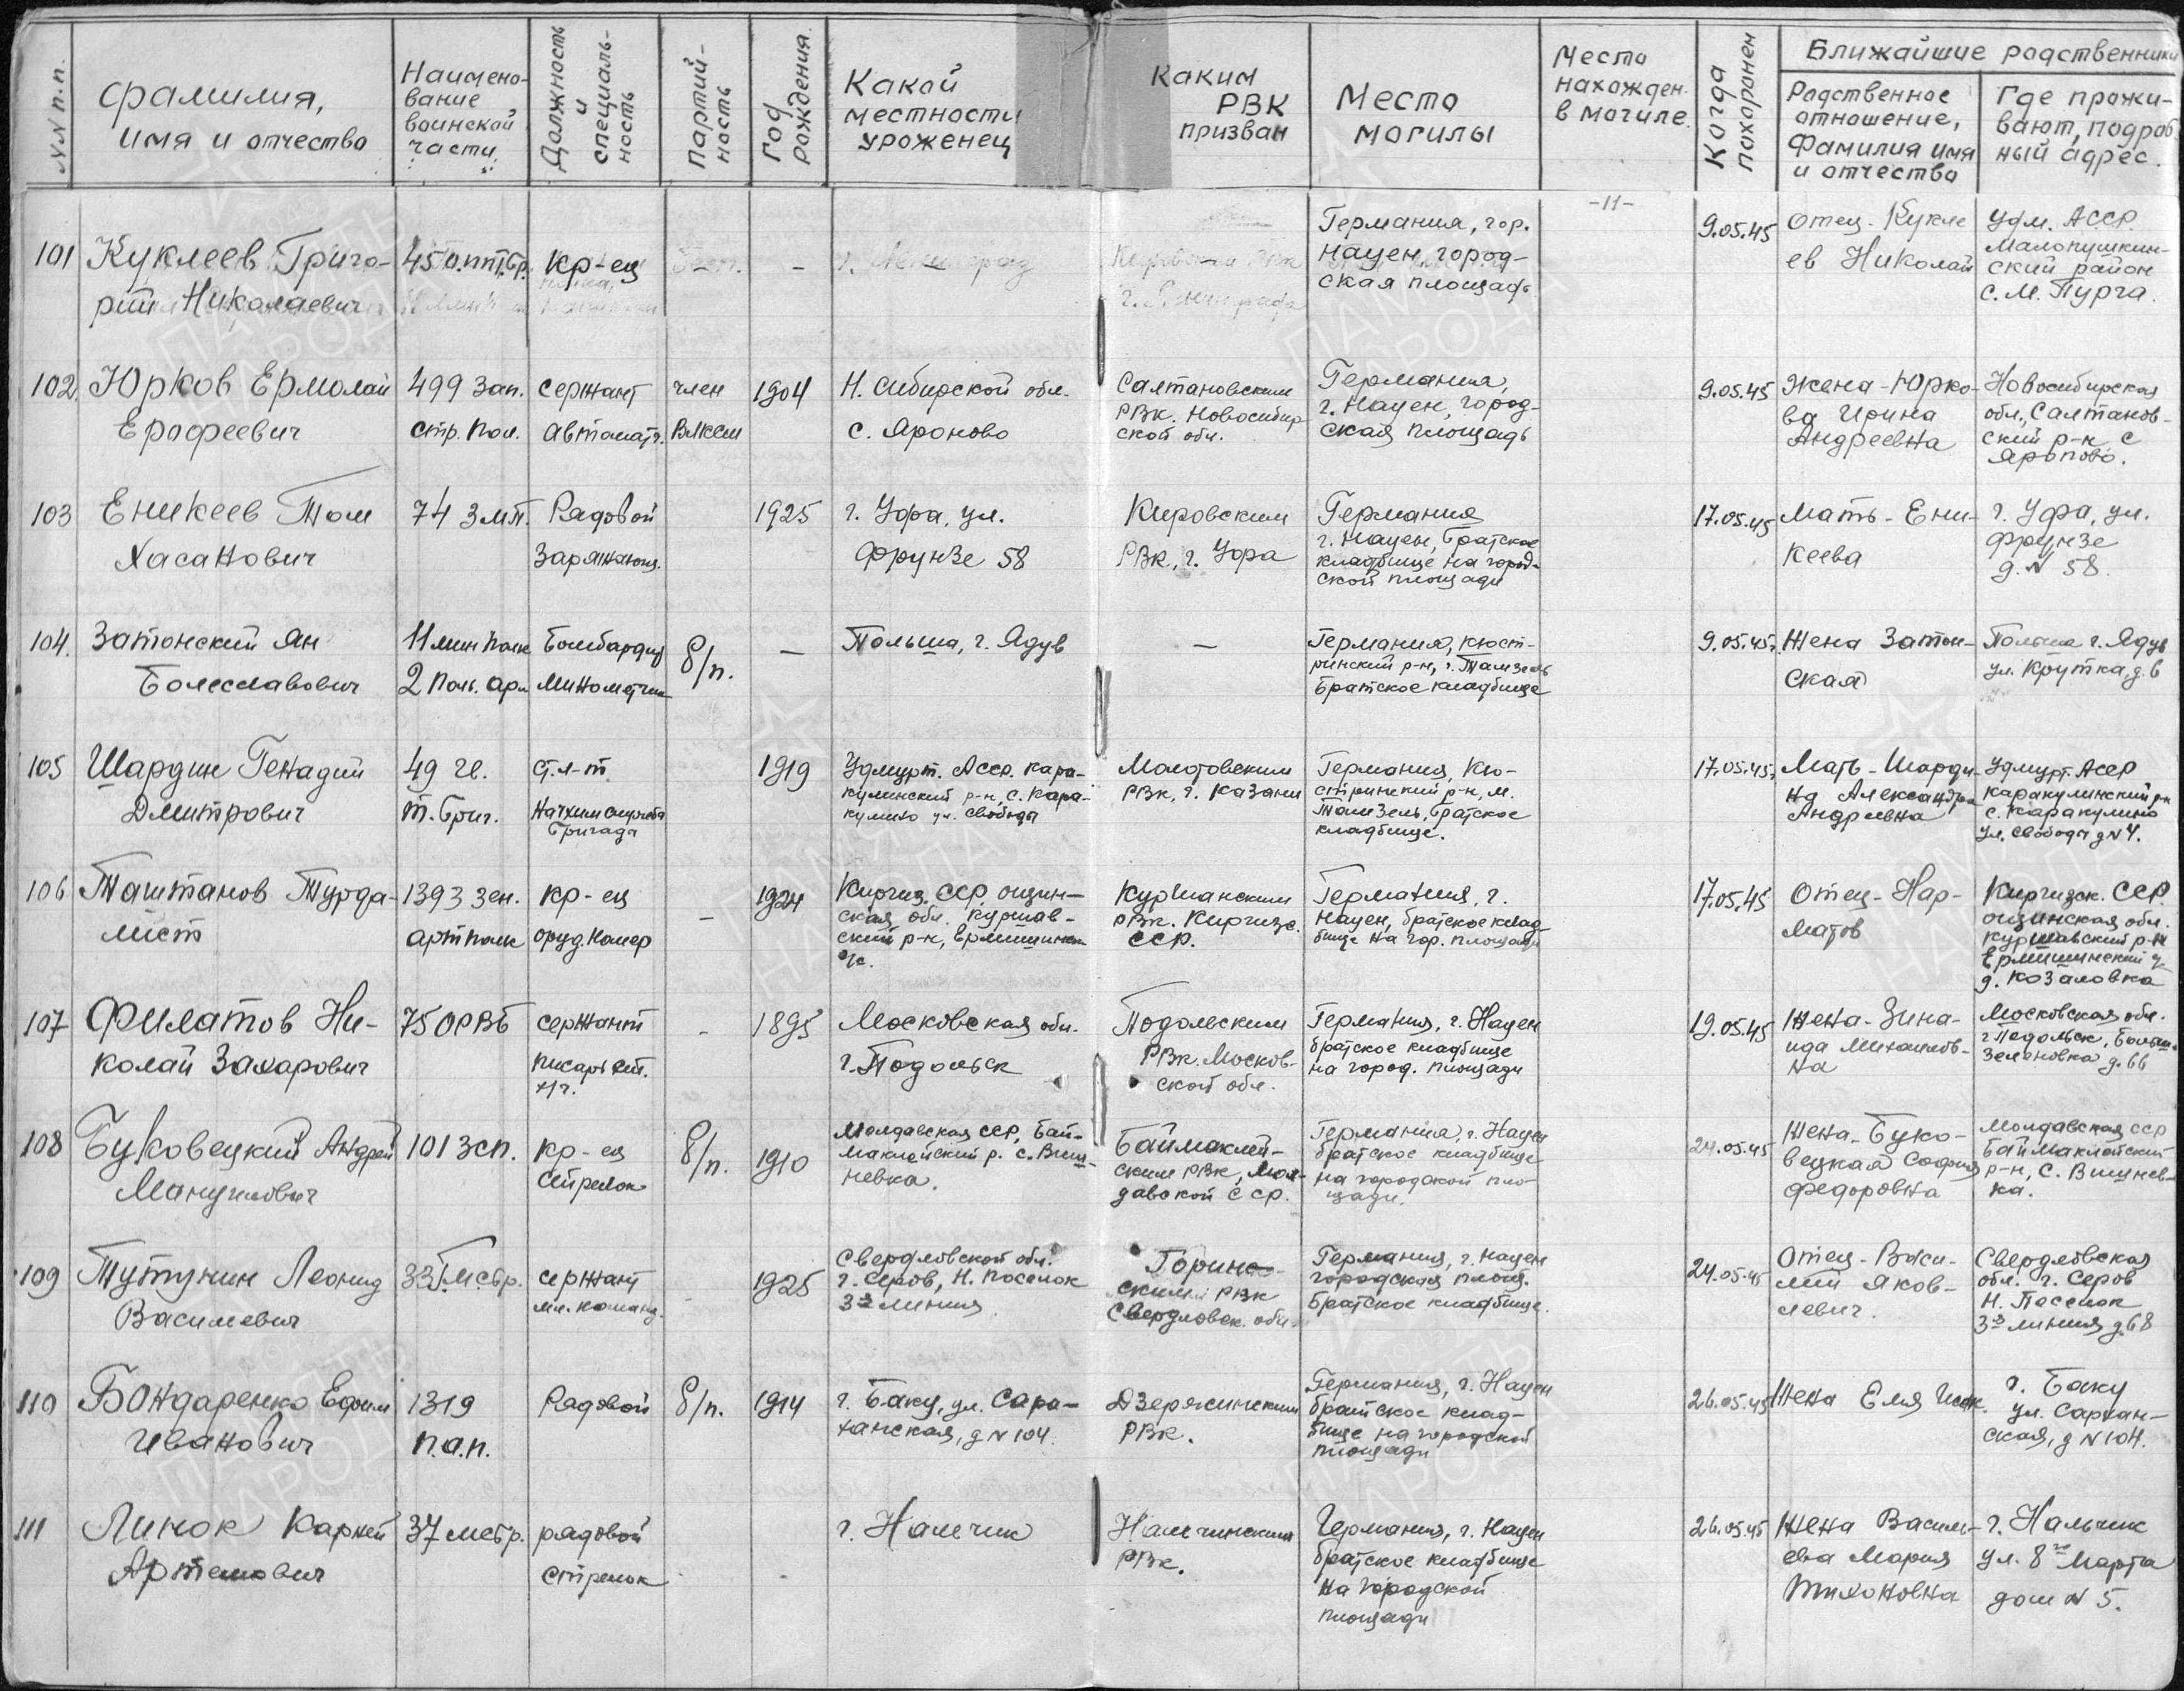 №№ п.п.
Фамилия,
имя и отчество
Наимено-
вание
воинской
части
Должность
и
специаль-
ность
Партий-
ность
Год
рождения.
Какой
местности
уроженец
Каким
РВК
призван
Место
могилы
Место
нахожден.
в могиле.
Когда
похоронен
Ближайшие родственники
Родственное
отношение,
Фамилия имя
и отчество
Где прожи-
вают, подроб
ный адрес.
-11-
101
Куклеев Григо-
рий Николаевич
45 о.птбр.
Кр-ец
-
Германия, гор.
Науен, город-
ская площадь
9.05.45
Отец - Кукле
ев Николай
Удм. АССР
Малопушкин-
ский район
с. М. Пурга.
102
Юрков Ермолай
Ерофеевич
499 зап.
стр. пол.
Сержант
автоматч.
член
ВЛКСМ
1904
Н. Сибирской обл.
с. Яроново
Салтановским
РВК. Новосибир
ской обл.
Германия,
г. Науен, город-
ская площадь
9.05.45
Жена - Юрко-
ва Ирина
Андреевна
Новосибирская
обл., Салтанов-
ский р-н с
Яропово.
103
Еникеев Том
Хасанович
74 ЗМП.
Рядовой
Заряжающ.
1925
г. Уфа, ул.
Фрунзе 58
Кировским
РВК, г. Уфа
Германия
г. Науен, Братское
кладбище на город-
ской площади
17.05.45
Мать - Ени-
кеева
г. Уфа, ул.
Фрунзе
д. N 58.
104.
Затонский Ян
Болеславович
11 мин полк
2 поль. арм
Бомбардир
Минометчик
б/п.
-
Польша, г. Ядув
-
Германия, Кюст-
ринский р-н, г. Тамзель
Братское кладбище
9.05.45.
Жена Затон-
ская
Польша г. Ядув
ул. Крутка, д. 6
105
Шардин Генадий
Дмитрович
49 гв.
т. бриг.
Ст. л-т.
Начхимслужба
Бригада
1919
Удмурт. АССР. Кара-
кулинский р-н, с. Кара-
кулино ул. Свобода
Молотовским
РВК, г. Казани
Германия, Кю-
стринский р-н, м.
Тамзель, Братское
кладбище.
17.05.45.
Мать - Шарди-
на Александра
Андреевна
Удмурт. АССР
Каракулинский р-н
с. Каракулино
ул. Свобода д N 4.
106
Таштанов Турда-
лист
1393 зен.
артполк
Кр-ец
оруд. номер
-
1924
Киргиз. ССР, ошин-
ская обл. Куршав-
ский р-н, Ермишинск
Куршанским
РВК. Киргизс.
ССР.
Германия, г.
Науен, братское клад-
бище на гор. площади
17.05.45
Отец - Нар-
матов
Киргизск. ССР
ошинская обл.
Куршавский р-н
Ермишинский
д. Козаловка
107
Филатов Ни-
колай Захарович
75 ОРВБ
Сержант
писарь
-
1895
Московская обл.
г. Подольск
Подольским
РВК. Москов-
ской обл.
Германия, г. Науен
братское кладбище
на город. площади
19.05.45
Жена - Зина-
ида Михайлов-
на
Московская обл.
г. Подольск, Больш-
Зеленовка д. 66
108
Буковецкий Андрей
Мануилович
101 зсп.
Кр-ец
Стрелок
б/п.
1910
Молдавская ССР, Бай-
маклийский р. с. Виш-
невка.
Баймаклий-
ским РВК, Мол-
давской ССР.
Германия, г. Науен
братское кладбище
на городской пло-
щади.
24.05.45
Жена - Буко-
вецкая София
Федоровна
Молдавская ССР
Баймаклийский
р-н, с. Вишнев-
ка.
109
Тутунин Леонид
Василевич
33 Гмсбр.
Сержант
мл. команд.
-
1925
Свердловской обл.
г. Серов, Н. поселок
3я линия
Горинс-
ским РВК
Свердловск. обл.
Германия, г. Науен
городская площ.
братское кладбище.
24.05.45
Отец - Васи-
лий Яков-
левич.
Свердловская
обл. г. Серов
Н. Поселок
3я линия д. 68
110
Бондаренко Ефим
Иванович
1319
п.а.п.
Рядовой
б/п.
1914
г. Баку, ул. Сара-
ханская, д N 104.
Дзержинским
РВК.
Германия, г. Науен
братское клад-
бище на городской
площади
26.05.45
Жена Еля Исак.
г. Баку
ул. Сархан-
ская, д N 104.
111
Линок Карней
Артемович
37 мсбр.
рядовой
стрелок
-
г. Налчик
Налчинским
РВК.
Германия, г. Науен
братское кладбище
на городской
площади
26.05.45
Жена Васил-
ева Мария
Тихоновна
г. Нальчик
ул. 8го Марта
дом N 5.